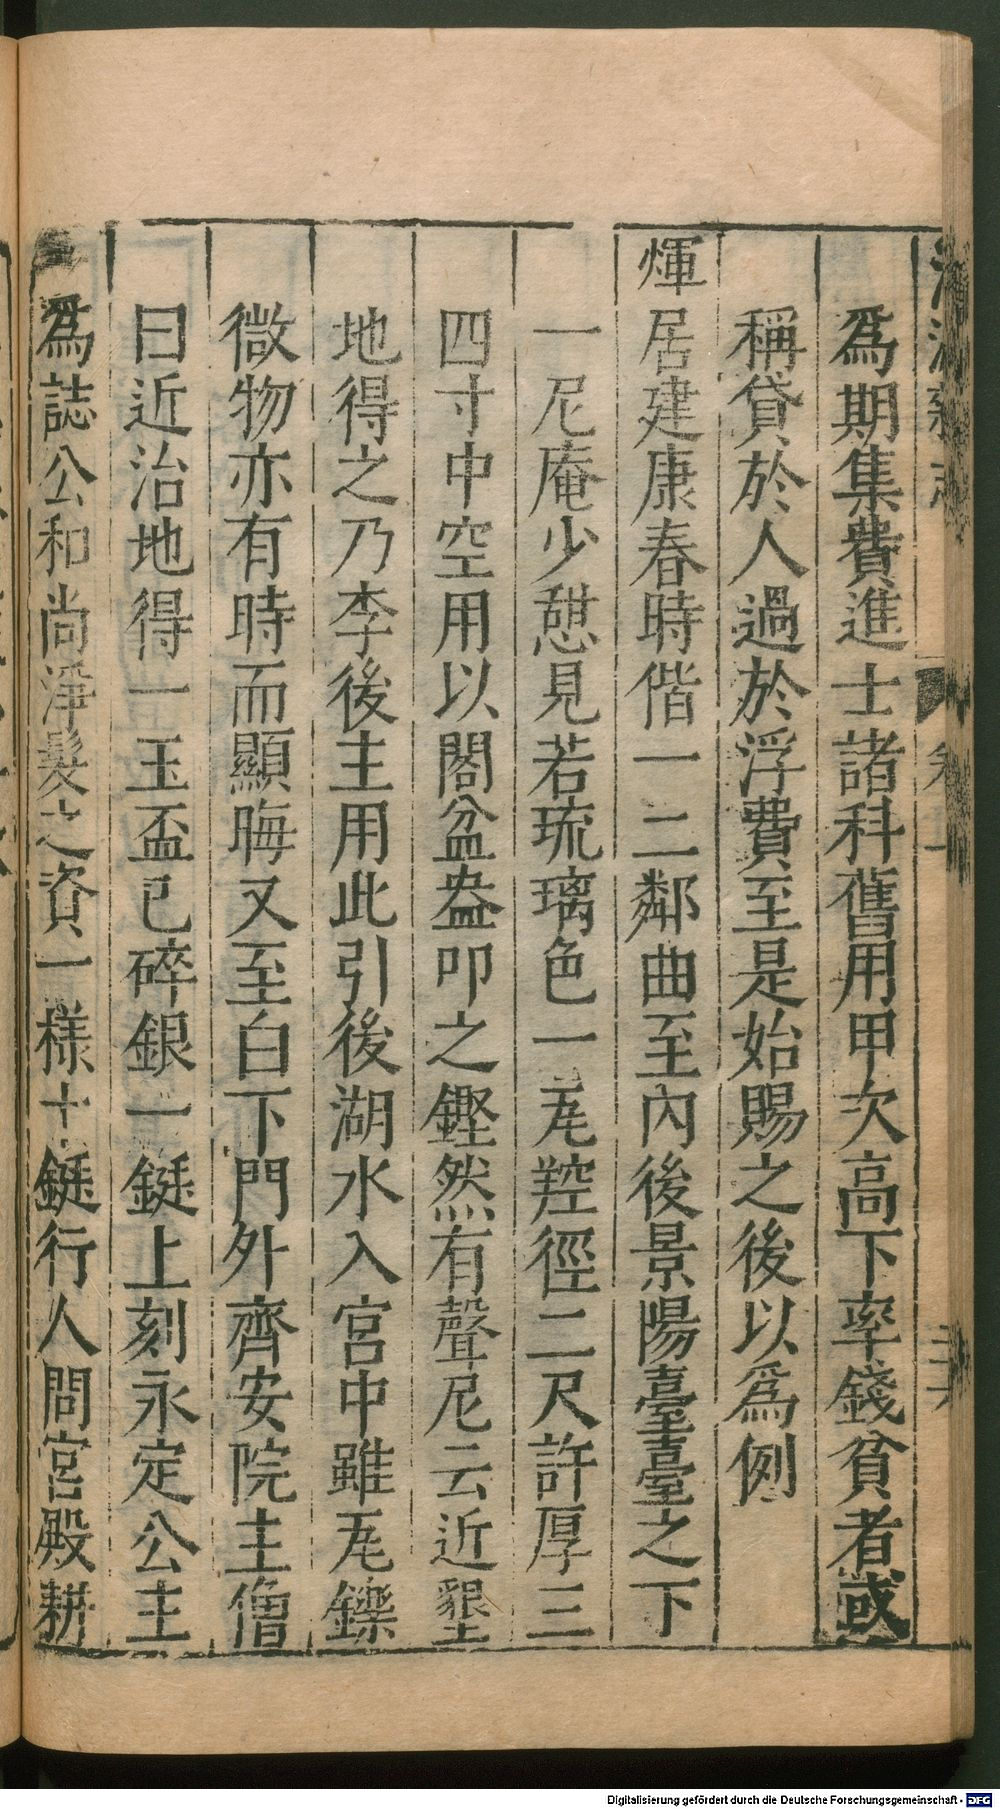 爲期集費進士諸科舊用甲次高下率錢貧者或
稱貸於人過於浮費至是始賜之後以爲例
煇居建康春時偕一二鄰曲至內後景陽臺臺之下
一尼庵少憩見若琉璃色一瓦㼚徑二尺許厚三
四寸中空用以閣盆盎叩之鏗然有聲尼云近墾
地得之乃李後主用此引後湖水入宮中雖瓦鑠
微物亦有時而顯晦又至白下門外齊安院主僧
曰近治地得一玉盃已碎銀一鋌上刻永定公主
爲誌公和尚淨髮之資一樣十鋌行人問宮殿耕
Digitalisierung gefördert durch die Deutsche Forschungsgemeinschaft - DFG